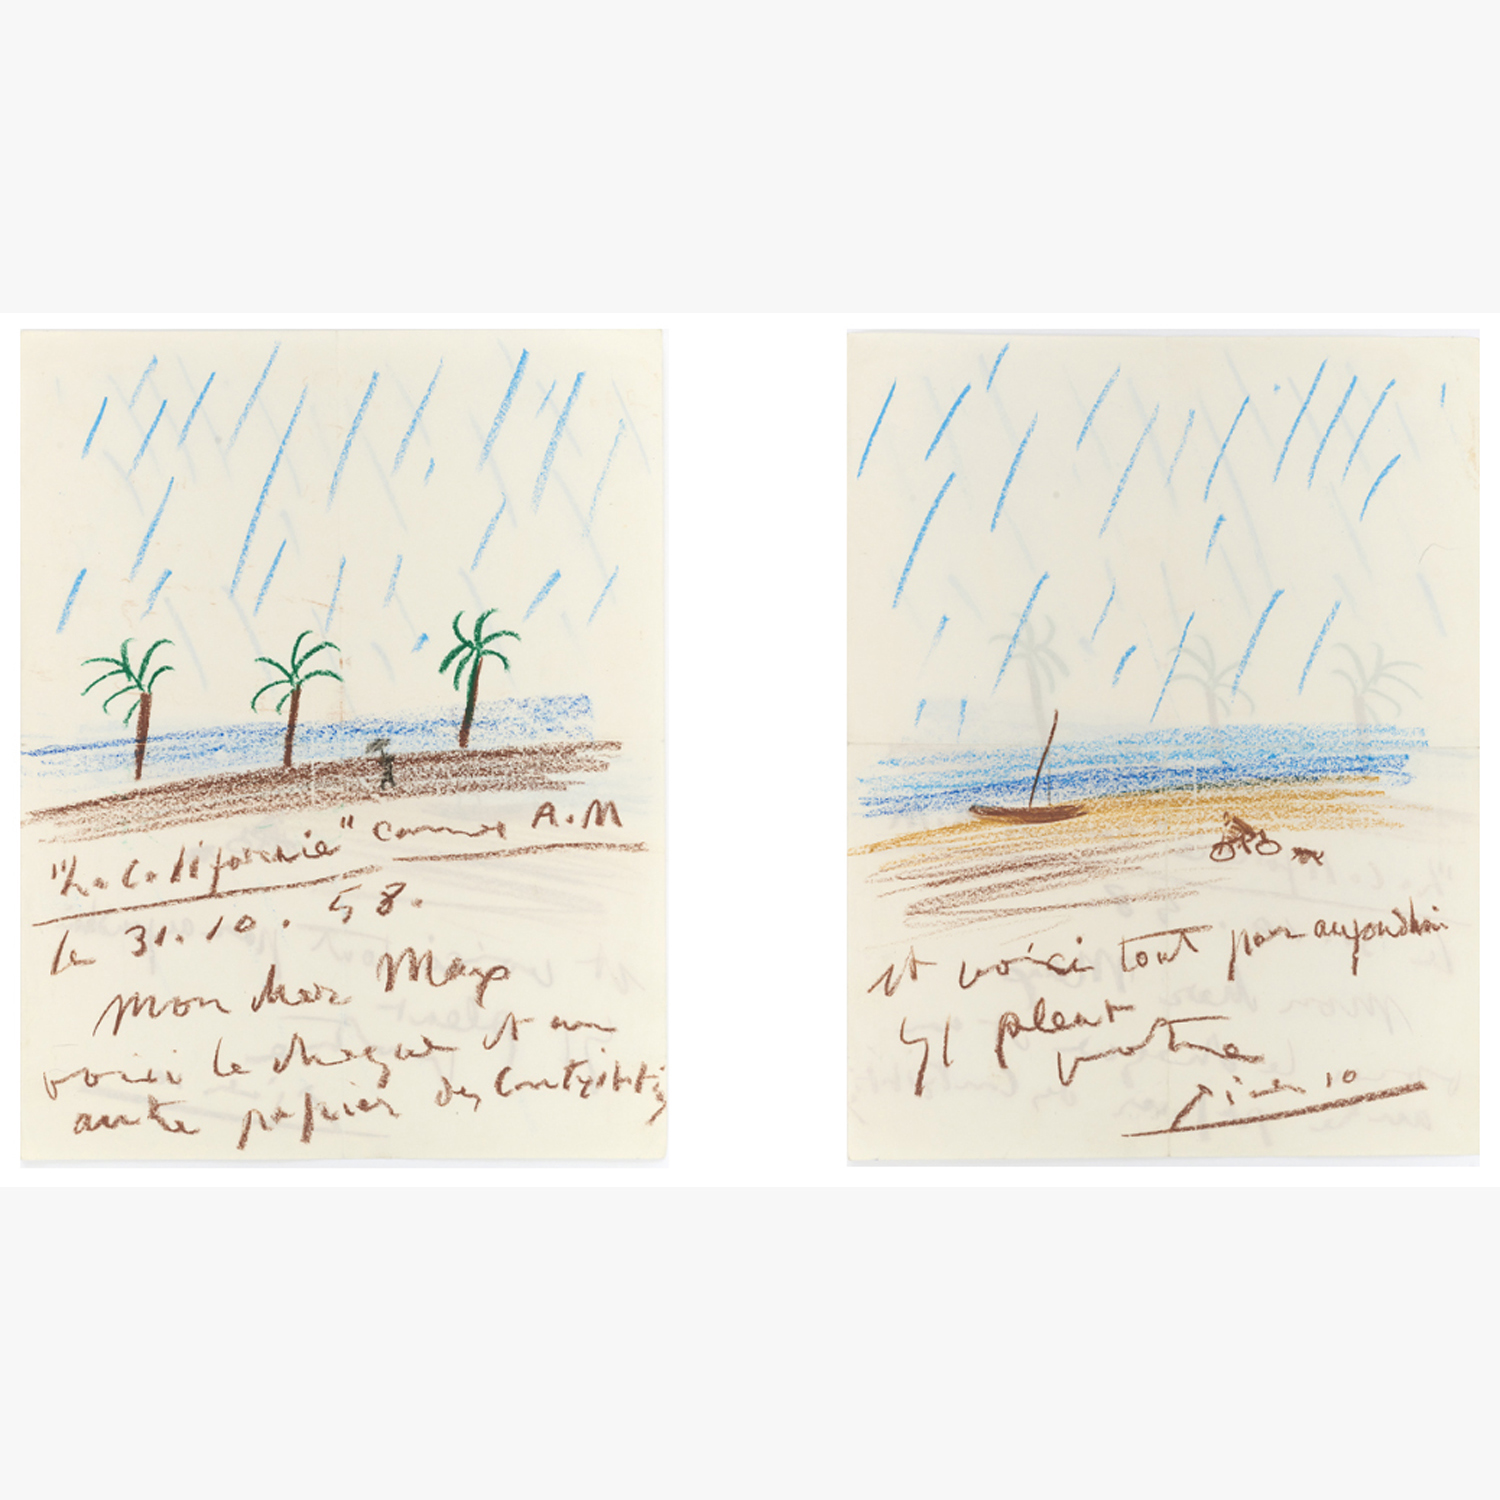 "La Californie" Cannes A.M
le 31.10.58.
mon cher Max
voici le cheque et un
autre papier des Contributi
et voici tout pour aujourdhui
Il pleut
votre
Picasso